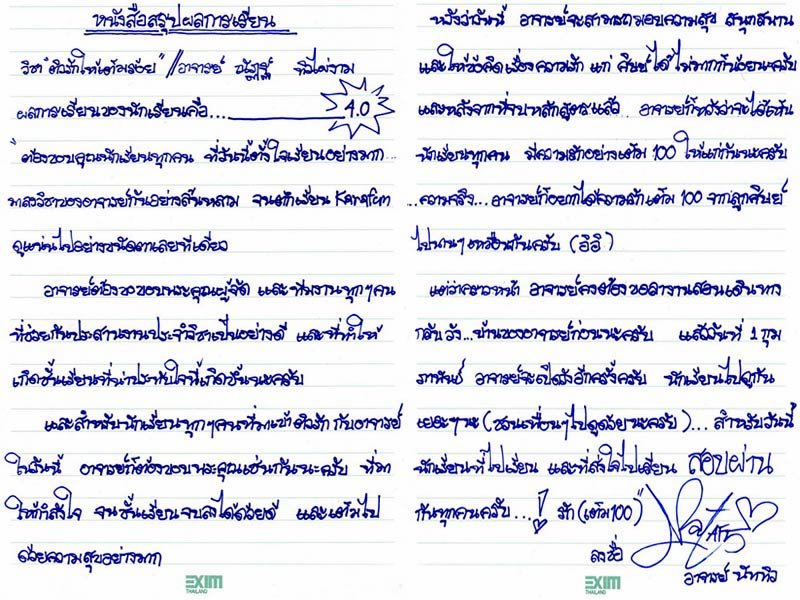 หนังสือสรุปผลการเรียน
วิชา "ติวรักให้เต็มร้อย" // อาจารย์ ที่ไม่งาม
ผลการเรียนของนักเรียนคือ... 4.0
"ต้องขอบคุณนักเรียนทุกคน ที่วันนี้ตั้งใจเรียนอย่างมาก...
มาลงวิชาของอาจารย์กันอย่างล้นหลาม จนตึกเรียน
ดูแน่นไปอย่างขนัดตาเลยทีเดียว
อาจารย์ต้องขอขอบพระคุณผู้จัด และทีมงานทุกๆคน
ที่ช่วยกันประสานงานประจำวิชาเป็นอย่างดี และที่ทำให้
เกิดชั้นเรียนที่น่าประทับใจนี้เกิดขึ้นนะครับ
และสำหรับนักเรียนทุกๆคนที่มาเข้าติวรัก กับอาจารย์
ในวันนี้ อาจารย์ก็ต้องขอบพระคุณเช่นกันนะครับ ที่มา
ให้กำลังใจ จนชั้นเรียนจบลงได้ด้วยดี และเต็มไป
ด้วยความสุขอย่างมาก
EXIM
THAILAND
หวังว่าวันนี้ อาจารย์จะสามารถมอบความสุข สนุกสนาน
และให้ข้อคิดเรื่องความรัก แก่ ศิษย์ ได้ไม่มากก็น้อยนะครับ
และหลังจากที่จบหลักสูตรแล้ว อาจารย์ก็หวังว่าจะได้เห็น
นักเรียนทุกคน มีความรักอย่างเต็ม 100 ให้แก่กันนะครับ
...ความจริง... อาจารย์ก็อยากได้ความรักเต็ม 100 จากลูกศิษย์
ไปนานๆเหมือนกันครับ (อิอิ)
แต่ว่าคราวหน้า อาจารย์คงต้องขอลางานสอนเดินทาง
กลับวัง...บ้านของอาจารย์ก่อนนะครับ แล้ววันที่ 1 กุม
ภาพันธ์ อาจารย์จะเปิดวังอีกครั้งครับ นักเรียนไปดูกัน
เยอะๆนะ (ชวนเพื่อนๆไปดูด้วยนะครับ)... สำหรับวันนี้
นักเรียนที่ไปเรียน และที่ส่งใจไปเรียน สอบผ่าน
กันทุกคนครับ...! รัก (เต็ม100)"
ลงชื่อ
อาจารย์ นัททิว
EXIM
THAILAND